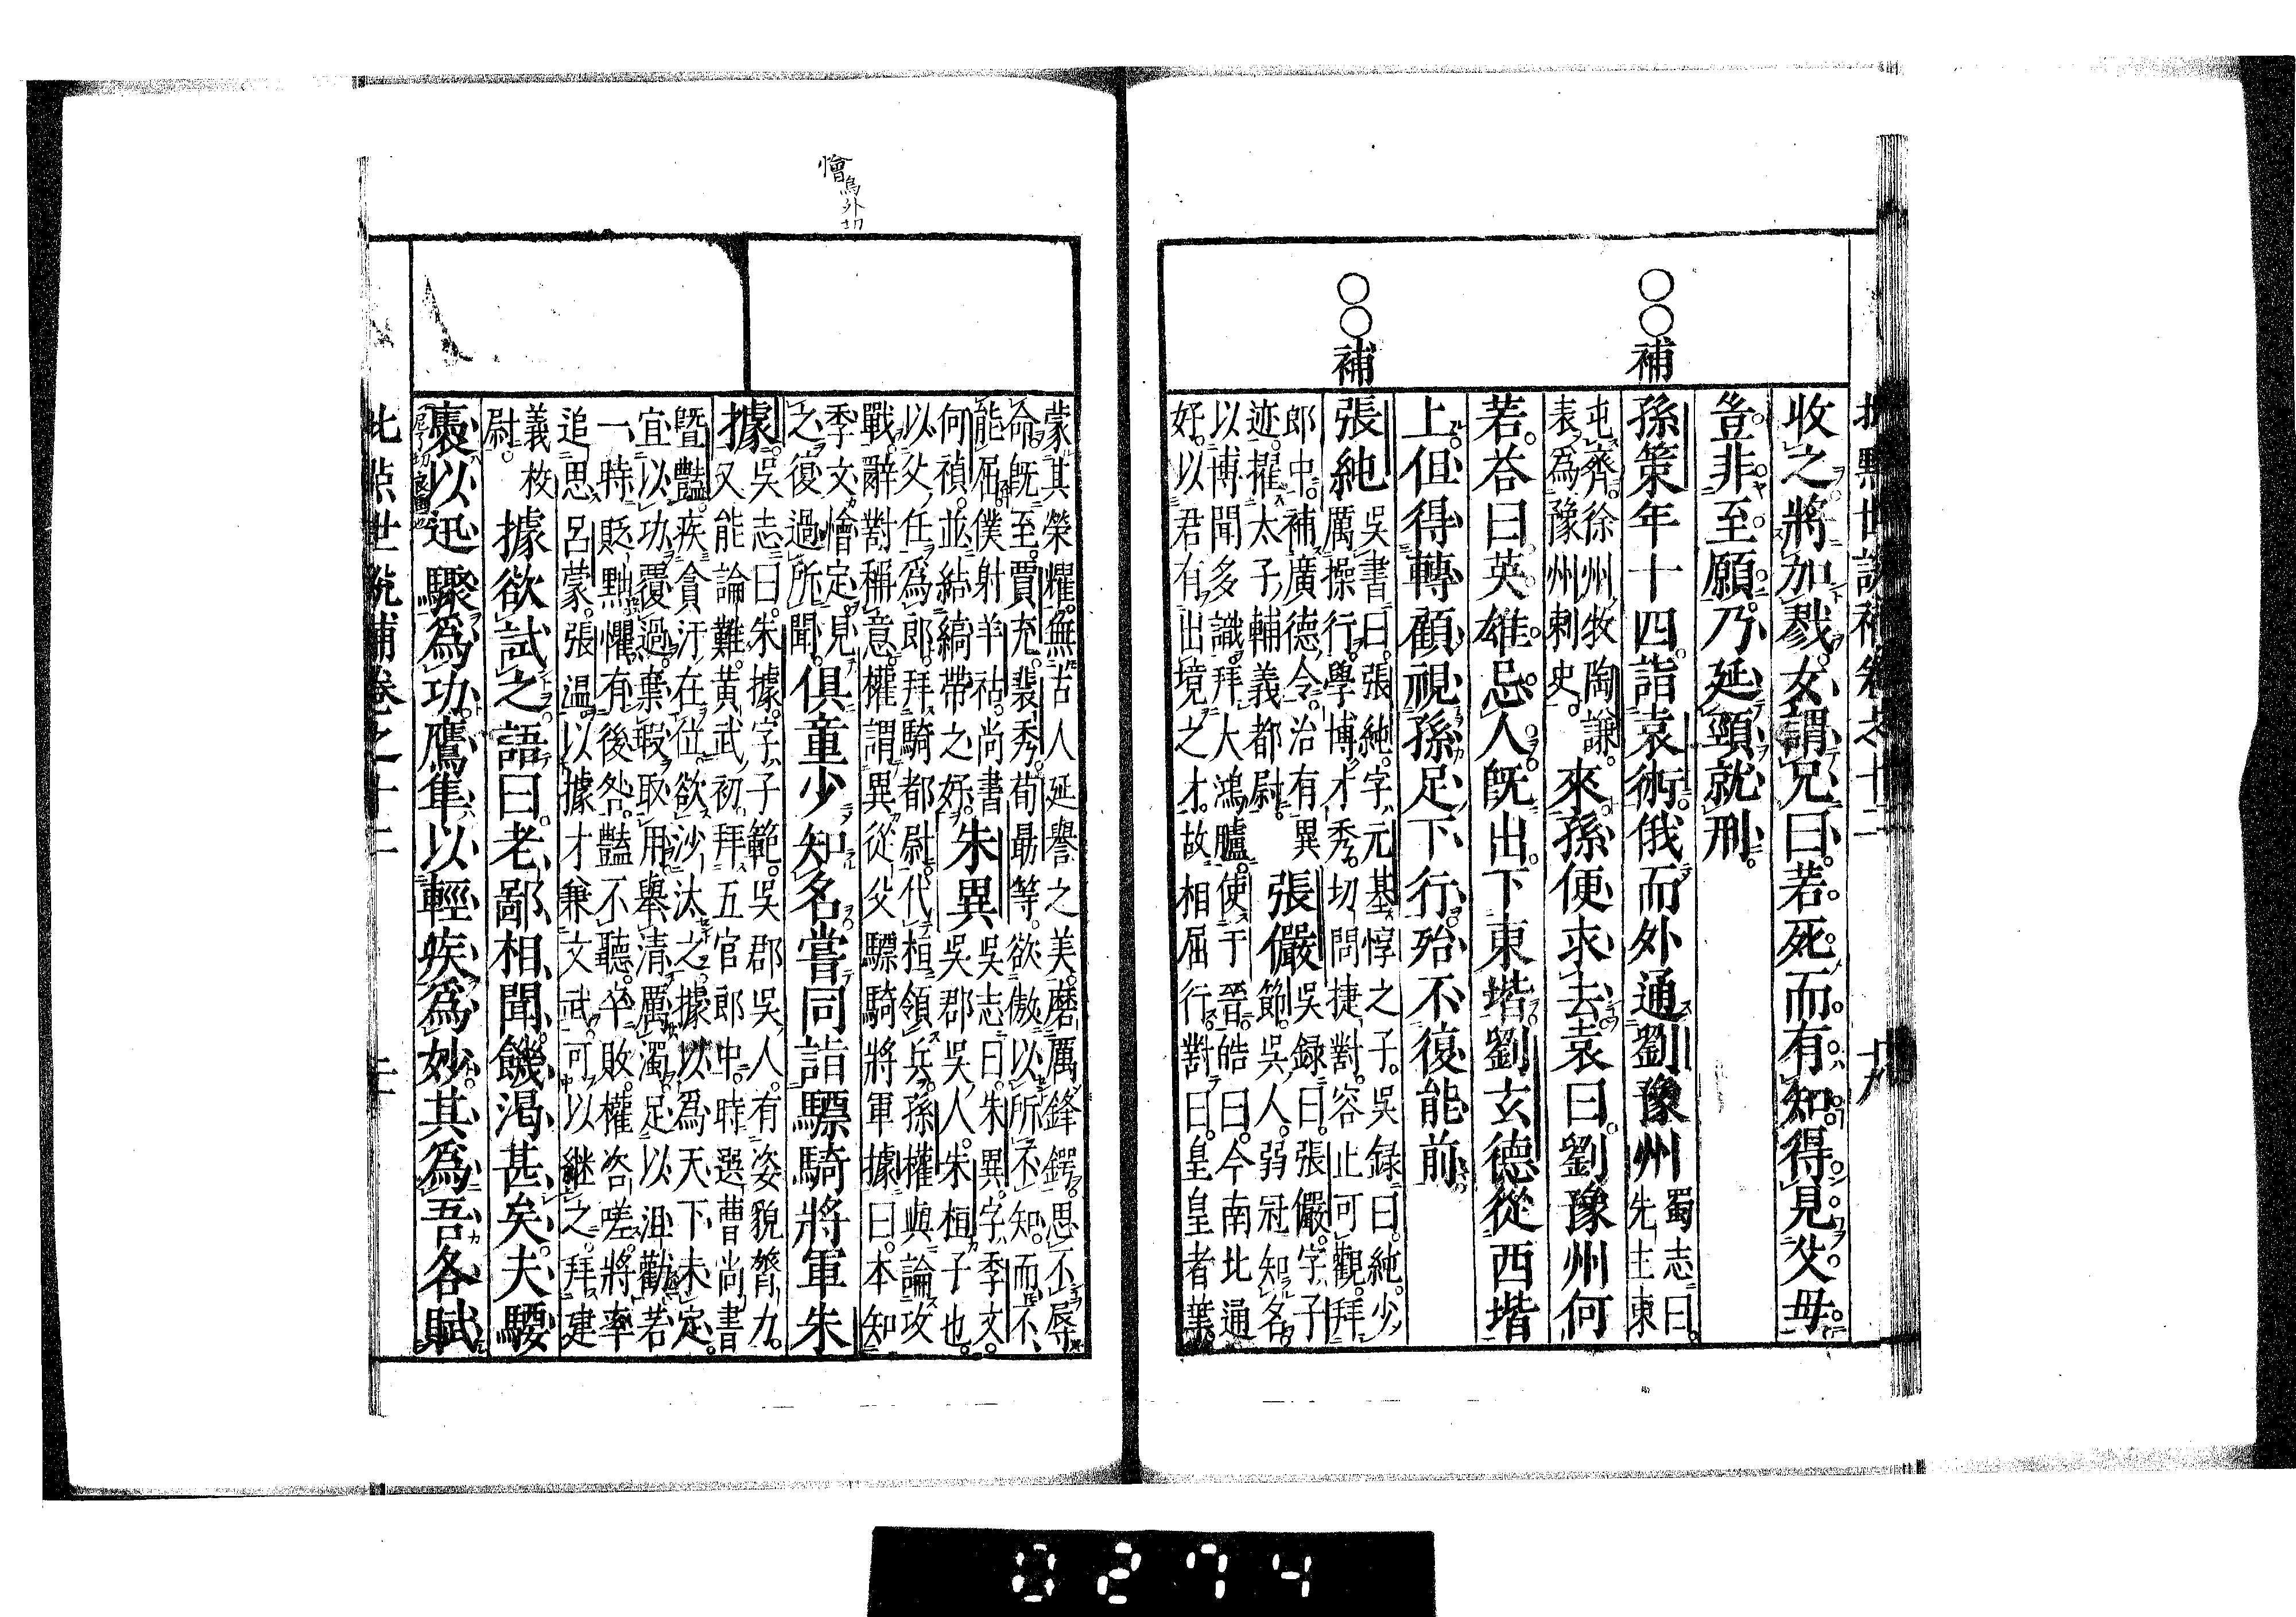 收之將加戮女謂兄曰若死而有知得見父母
豈非至願乃延頸就刑
補
孫策年十四詣袁術俄而外通劉豫州蜀志曰先主東
屯齊徐州牧陶謙
表為豫州刺史來孫便求去袁曰劉豫州何
若荅曰英雄忌人既出下東堦劉玄德從西堦
上但得轉顧視孫足下行殆不復能前
補
張純吳書曰張純字元基惇之子吳録曰純少
厲操行學博才秀切問捷對容止可觀拜
郎中補廣德令治有異
迹擢太子輔義都尉張儼吳録曰張儼字子
節吳人弱冠知名
以博聞多識拜大鴻臚使于晉皓曰今南北通
好以君有出境之才故相屈行對曰皇皇者華
憎烏外切
蒙其榮耀無古人延譽之美磨厲鋒鍔思不辱
命既至賈充裴秀荀勗等欲傲以所不知而不
能屈僕射羊祜尚書
何禎並結縞帶之好朱異吳志曰朱異字季文
吳郡吳人朱桓子也
以父任為郎拜騎都尉代桓領兵孫權與論攻
戰辭對稱意權謂異從父驃騎將軍據曰本知
季文憎定見
之復過所聞俱童少知名嘗同詣驃騎將軍朱
據吳志曰朱據字子範吳郡吳人有姿貌膂力
又能論難黃武初拜五官郎中時選曹尚書
曁豔疾貪汙在位欲沙汰之據以為天下未定
宜以功覆過棄瑕取用舉清厲濁足以沮勸若
一時貶黜懼有後咎豔不聽卒敗權咨嗟將率
追思呂蒙張溫以據才兼文武可以継之拜建
義校
尉據欲試之語曰老鄙相聞饑渴甚矣夫騕
褭以迅驟為功鷹隼以輕疾為妙其為吾各賦
0274